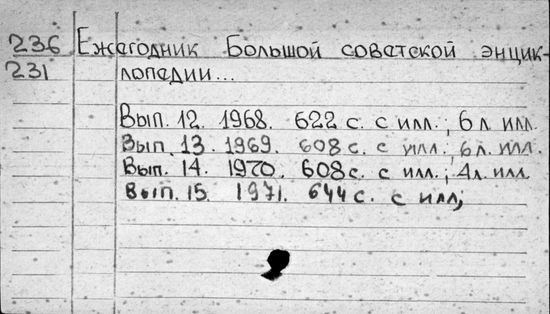 236 Ежагодник Большой соватской энцик-
231 лопадии...
Вып. 12. 1968. 622 с. с илл.; 6 л. илл.
Вып. 13. 1969. 608 с. с илл.; 6 л. илл.
Вып. 14. 1970. 608 с. с илл.; 4 л. илл.
Вып. 15. 1971. 644 с. с илл;